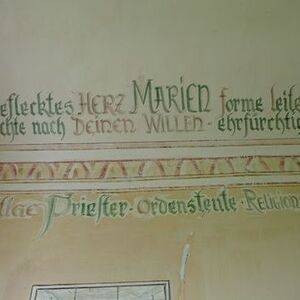 eflecktes HERZ MARIEN forme leite
chte nach DEINEN WILLEN - ehrfürchtig
Priester · Ordensleute · RELIGION